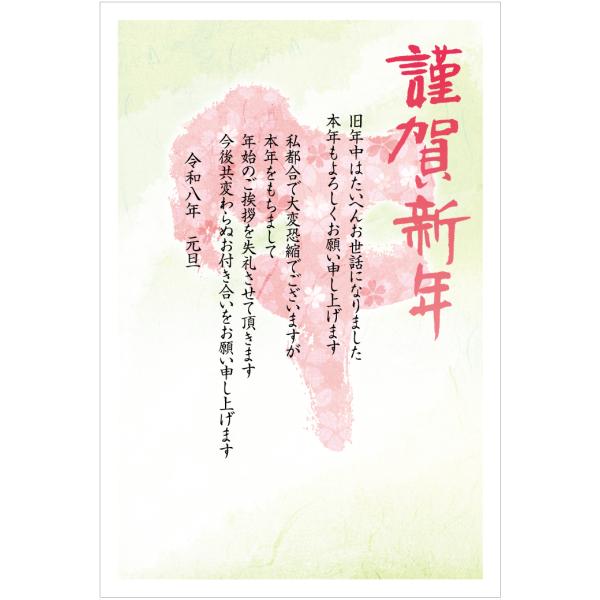 謹賀新年
旧年中はたいへんお世話になりました
本年もよろしくお願い申し上げます
私都合で大変恐縮でございますが
本年をもちまして
年始のご挨拶を失礼させて頂きます
今後共変わらぬお付き合いをお願い申し上げます
令和八年　元旦